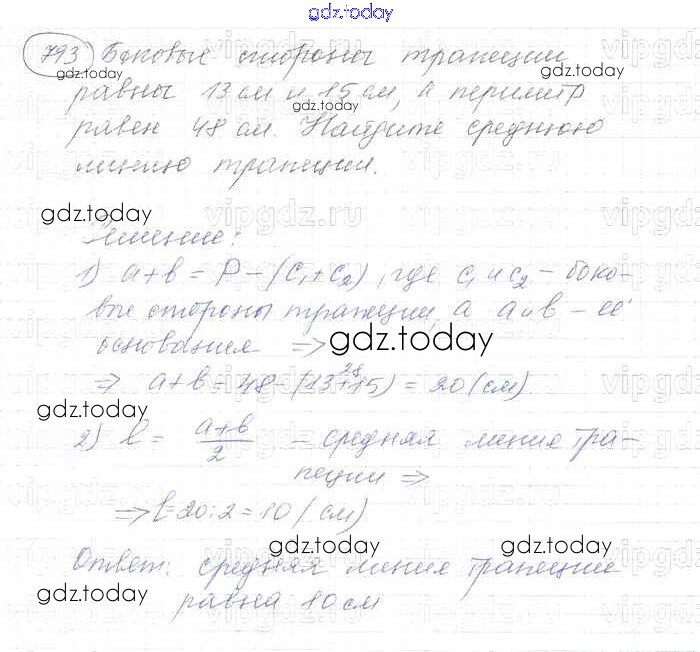 gdz.today
793 Боковые стороны трапеции
равны 13 см и 15 см, а периметр
равен 48 см. Найдите среднюю
линию трапеции.
Решение:
1) a+b = P - (c₁+c₂), где c₁ и c₂ - боко-
вые стороны трапеции, а a и b - её
основания ⇒
⇒ a+b = 48 - (13+15) = 20 (см)
28
2) l = a+b/2 - средняя линия тра-
пеции ⇒
⇒ l=20:2=10 (см)
Ответ: средняя линия трапеции
равна 10 см
gdz.today
gdz.today
gdz.today
gdz.today
gdz.today
gdz.today
gdz.today
gdz.today
gdz.today
gdz.today
vipgdz.ru